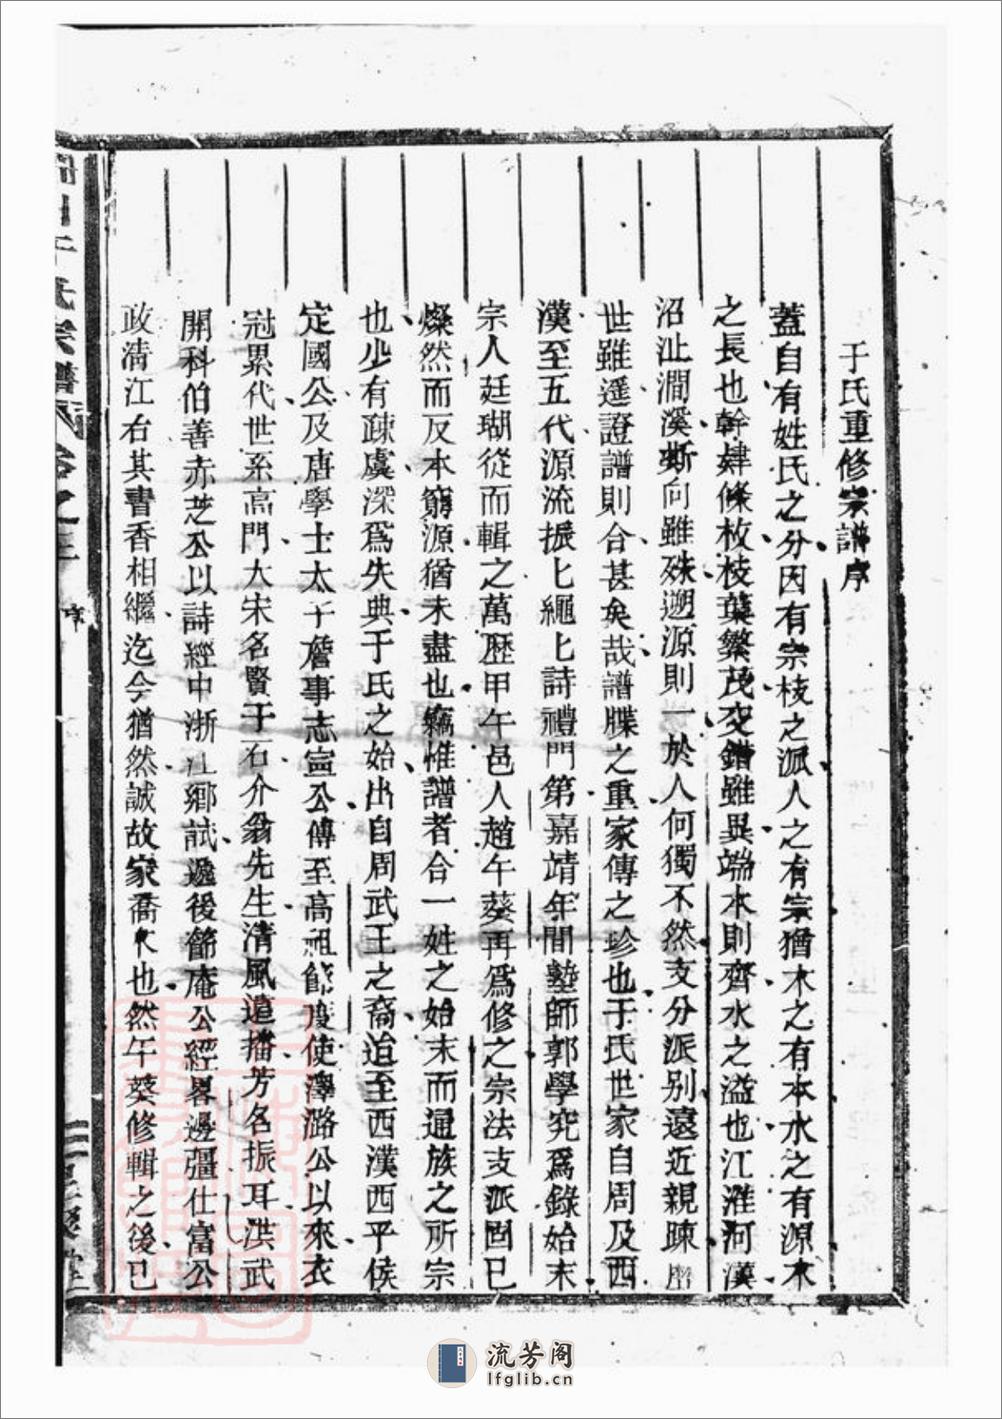 于氏重修宗譜序
蓋自有姓氏之分因有宗枝之派人之有宗猶木之有本水之有源木
之長也幹肄條枚枝葉繁茂交錯雖異端本則齊水之溢也江淮河漢
沼沚澗溪斯向雖殊遡源則一於人何獨不然支分派别遠近親踈
世雖遥證譜則合甚矣哉譜牒之重家傳之珍也于氏世家自周及西
漢至五代源流振匕繩匕詩禮門第嘉靖年間塾師郭學究爲錄始末
宗人廷瑚從而輯之萬歷甲午邑人趙午葵再爲修之宗法支派固已
燦然而反本窮源猶未盡也竊惟譜者合一姓之始末而通族之所宗
也少有疎虞深爲失典于氏之始出自周武王之裔迨至西漢西平侯
定國公及唐學士太子詹事志寧公傳至高祖節度使澤潞公以來衣
冠累代世系高門大宋名賢于石介翁先生清風遠播芳名振耳洪武
開科伯善赤芝公以詩經中浙江鄉試逸後節庵公經畧邊疆仕富公
政清江右其書香相繼迄今猶然誠故家喬木也然午葵修輯之後已
于氏宗譜
卷之三
序
流芳阁
lfglib.cn